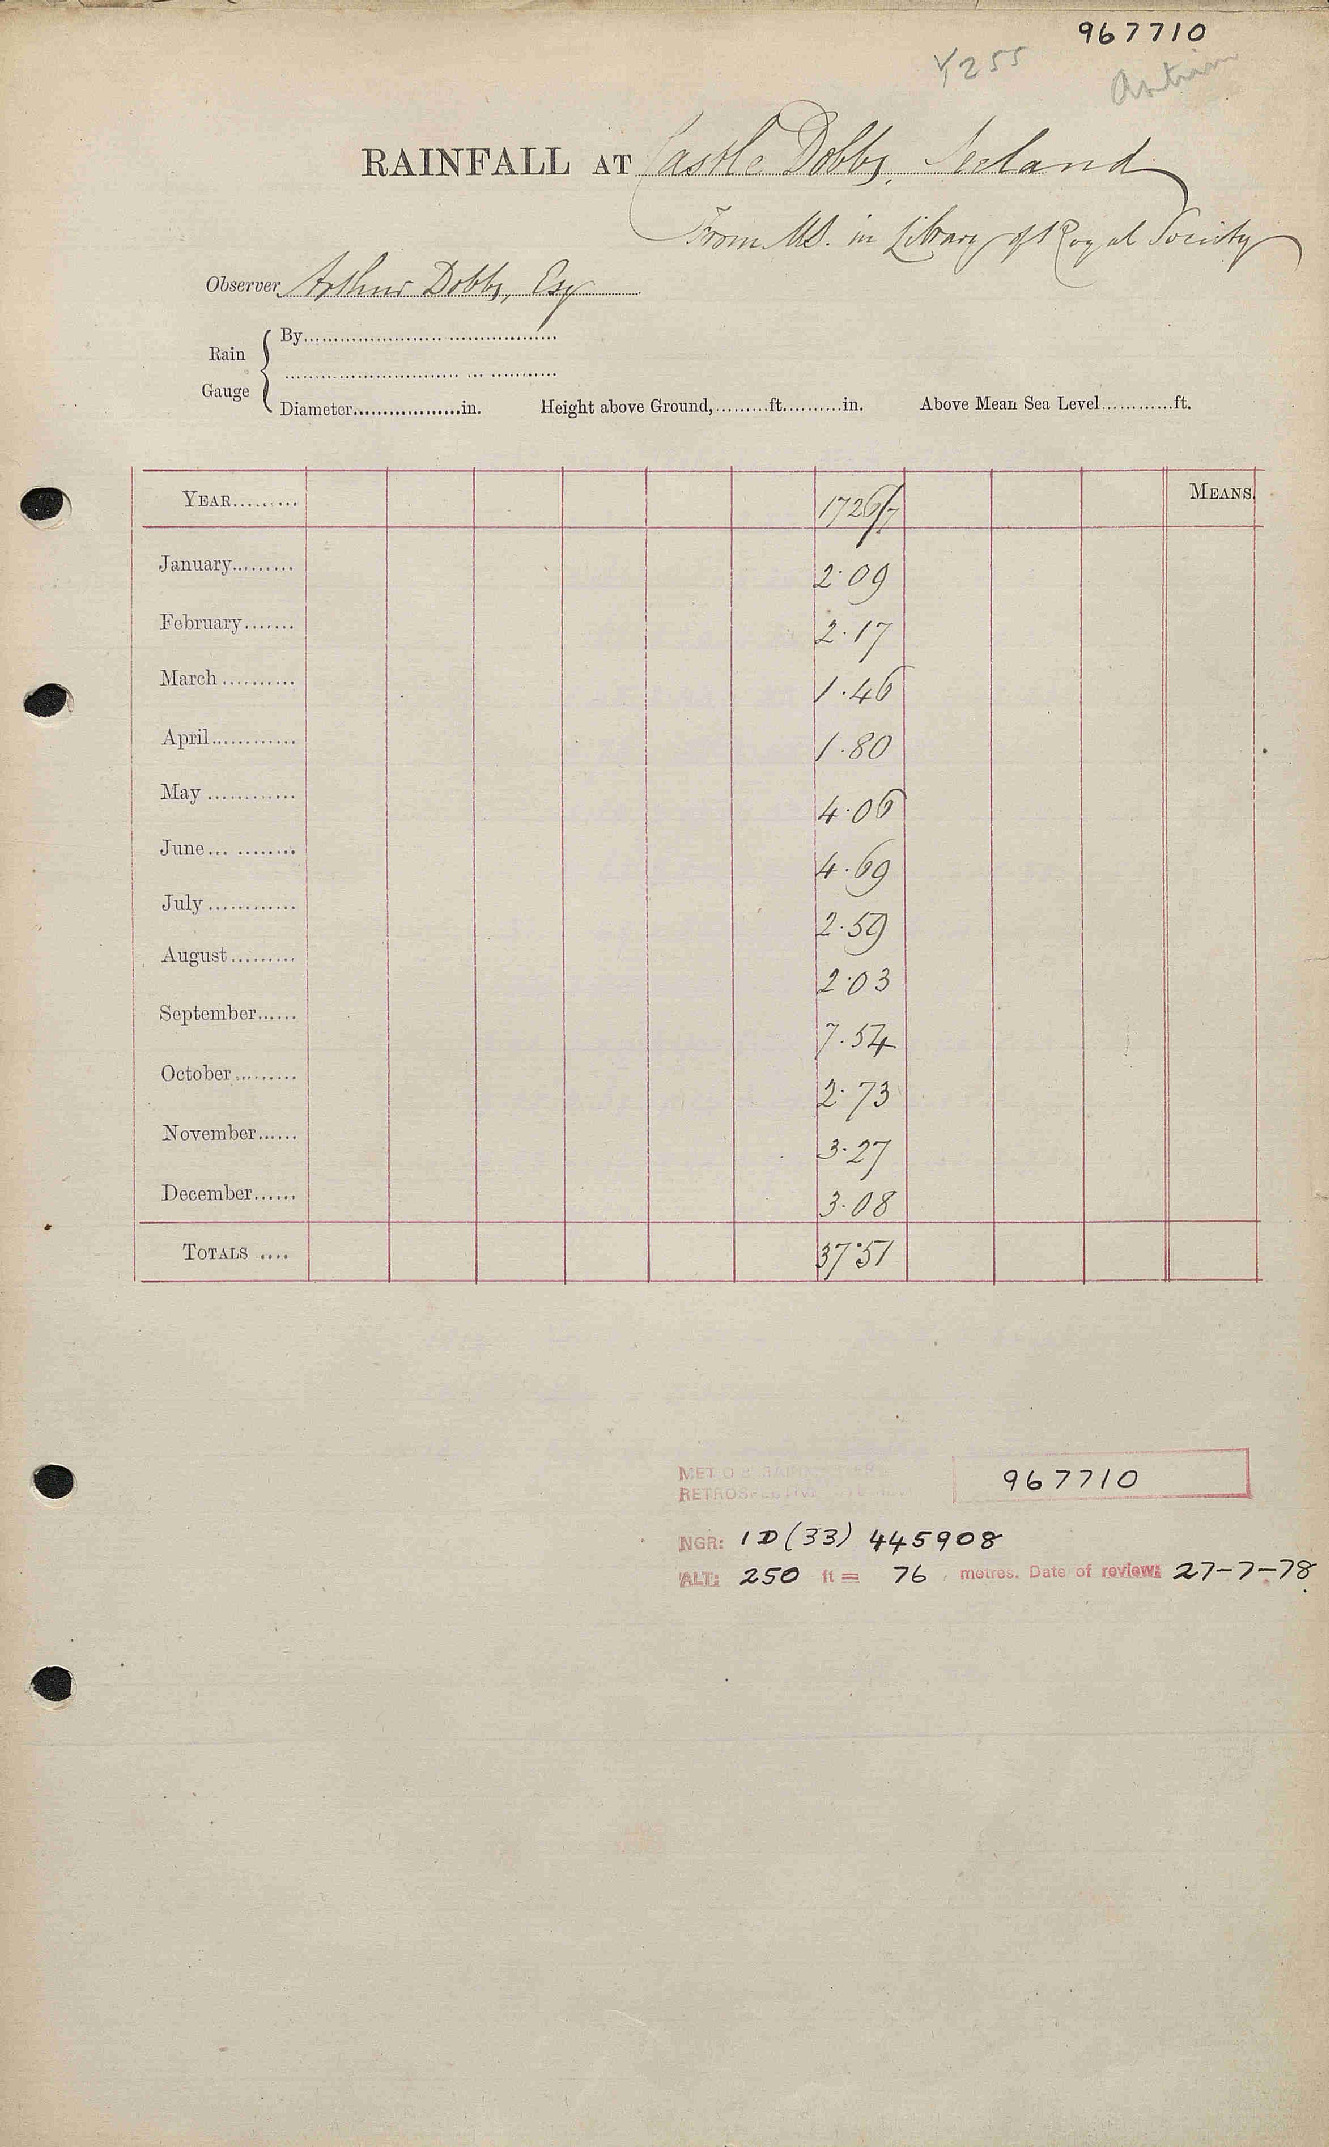 967710
Y255 Antrim
RAINFALL AT Castle Dobbs, Ireland
From MS. in Library of Royal Society
Observer Arthur Dobbs, Esq
Rain Gauge
By
Diameter in. Height above Ground, ft. in. Above Mean Sea Level ft.
YEAR 1726/7 MEANS.
January 2.09
February 2.17
March 1.46
April 1.80
May 4.06
June 4.69
July 2.59
August 2.03
September 7.54
October 2.73
November 3.27
December 3.08
TOTALS 37.51
MET O 8
RETROSPECTIVE 967710
NGR: ID (33) 445908
ALT: 250 ft = 76 metres. Date of review: 27-7-78